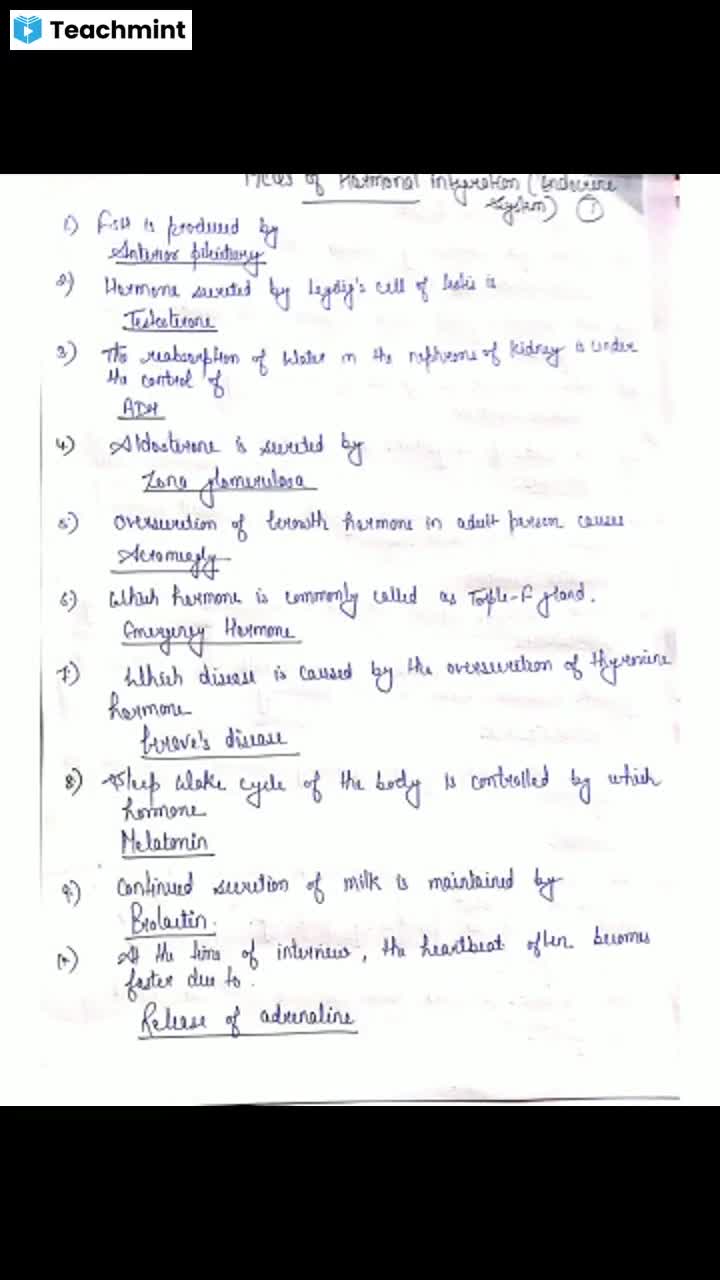 Teachmint
MCQs of Hormonal integration (Endocrine
System) 1
1) FSH is produced by
Anterior pituitary
2) Hormone secreted by Leydig's cell of testis is
Testosterone
3) The reabsorption of water in the nephrons of kidney is under
the control of
ADH
4) Aldosterone is secreted by
Zona glomerulosa
5) Oversecretion of Growth hormone in adult person causes
Acromegly
6) Which hormone is commonly called as Triple-F gland.
Emergency Hormone
7) Which disease is caused by the oversecretion of thyroxine
hormone
Grave's disease
8) Sleep Wake cycle of the body is controlled by which
hormone
Melatonin
9) Continued secretion of milk is maintained by
Prolactin.
10) At the time of interview, the heartbeat often becomes
faster due to.
Release of adrenaline